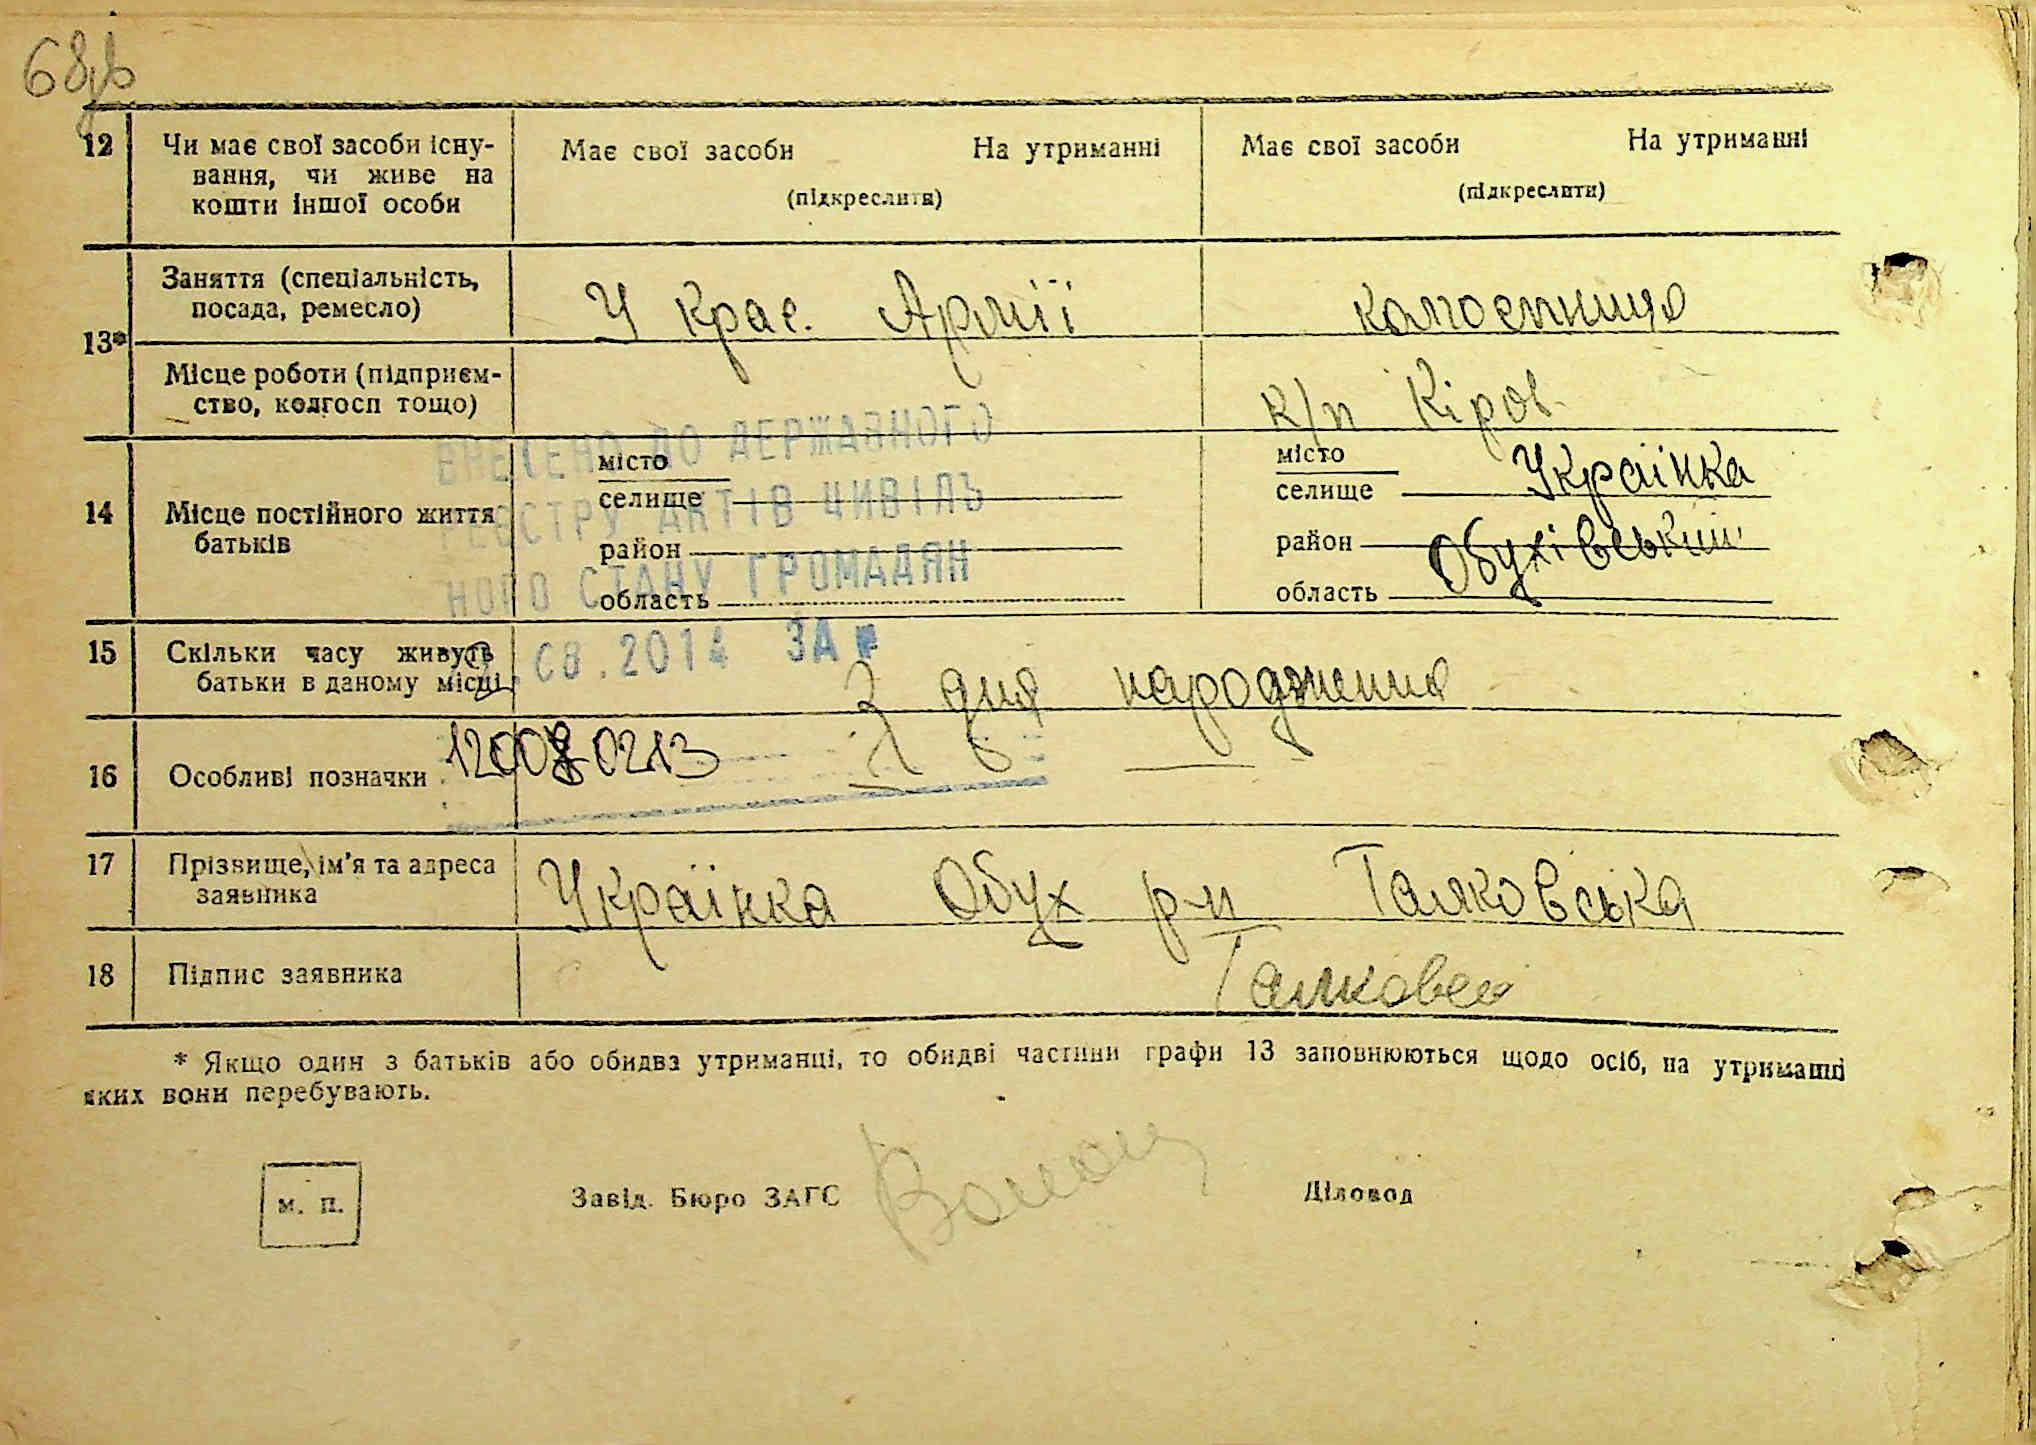 68зв
12 Чи має свої засоби існу- Має свої засоби На утриманні Має свої засоби На утриманні
вання, чи живе на (підкреслити) (підкреслити)
кошти іншої особи
Заняття (спеціальність, У Крас. Армії колгоспниця
посада, ремесло)
13*
Місце роботи (підприєм- к/п Кіров.
ство, колгосп тощо)
ВНЕСЕНО ДО ДЕРЖАВНОГО
РЕЄСТРУ АКТІВ ЦИВІЛЬ
НОГО СТАНУ ГРОМАДЯН
08.2014 ЗА №
120080213
14 Місце постійного життя місто місто Українка
батьків селище селище
район район Обухівський
область область
15 Скільки часу живуть З дня народження
батьки в даному місці
16 Особливі позначки
17 Прізвище, ім'я та адреса Українка Обух р-н
заявника
18 Підпис заявника
* Якщо один з батьків або обидва утриманці, то обидві частини графи 13 заповнюються щодо осіб, на утриманні
яких вони перебувають.
м. п. Завід. Бюро ЗАГС Діловод